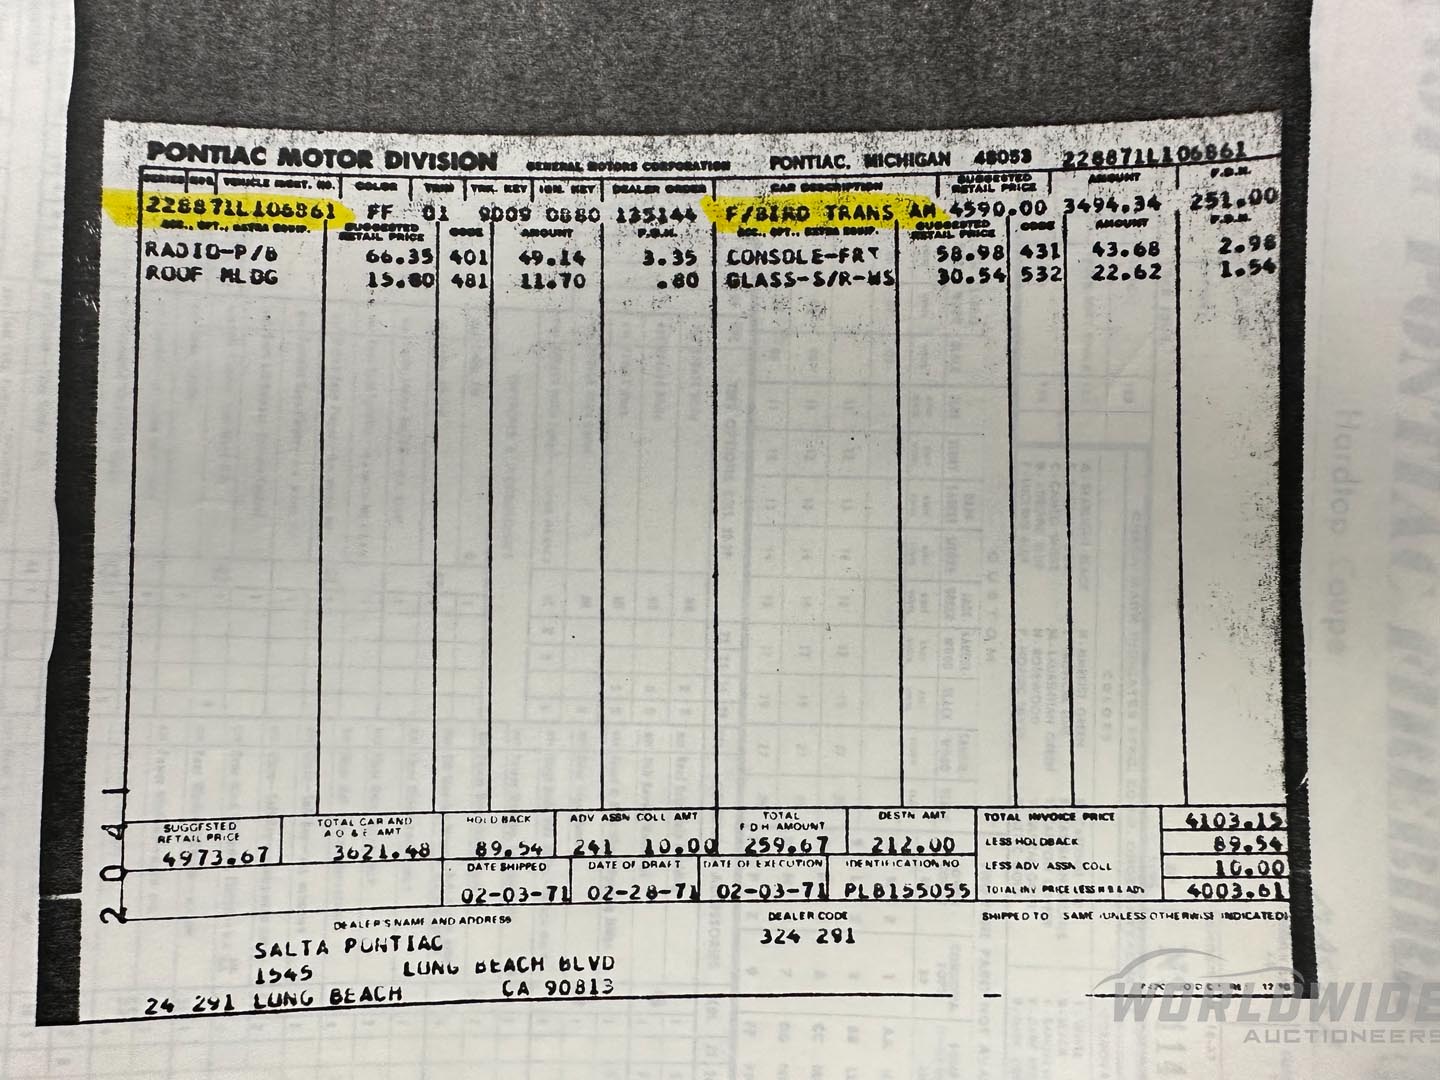 PONTIAC MOTOR DIVISION GENERAL MOTORS CORPORATION PONTIAC, MICHIGAN 48053 228871L106861
VEHICLE IDENT. NO. COLOR TRIM TRK. KEY IGN. KEY DEALER ORDER CAR DESCRIPTION SUGGESTED RETAIL PRICE AMOUNT
228871L106861 FF 01 9D09 0B80 135144 F/BIRD TRANS AM 4590.00 3494.34 251.00
ACC., OPT., EXTRA EQUIP. SUGGESTED RETAIL PRICE CODE AMOUNT ACC., OPT., EXTRA EQUIP. SUGGESTED RETAIL PRICE CODE AMOUNT
RADIO-P/B 66.35 401 49.14 3.35 CONSOLE-FRT 58.98 431 43.68 2.98
ROOF MLDG 15.80 481 11.70 .80 GLASS-S/R-WS 30.54 532 22.62 1.54
Hardtop Coupe
2041
SUGGESTED RETAIL PRICE TOTAL CAR AND A O & E AMT HOLD BACK ADV ASSN COLL AMT TOTAL F D H AMOUNT DESTN AMT TOTAL INVOICE PRICE 4103.15
4973.67 3621.48 89.54 241 10.00 259.67 212.00 LESS HOLDBACK 89.54
DATE SHIPPED DATE OF DRAFT DATE OF EXECUTION IDENTIFICATION NO LESS ADV ASSN COLL 10.00
02-03-71 02-28-71 02-03-71 PL8155055 TOTAL INV PRICE LESS H B & ADV 4003.61
DEALER'S NAME AND ADDRESS DEALER CODE SHIPPED TO SAME (UNLESS OTHERWISE INDICATED)
SALTA PONTIAC 324 291
1545 LONG BEACH BLVD
24 291 LONG BEACH CA 90813
WORLDWIDE
AUCTIONEERS